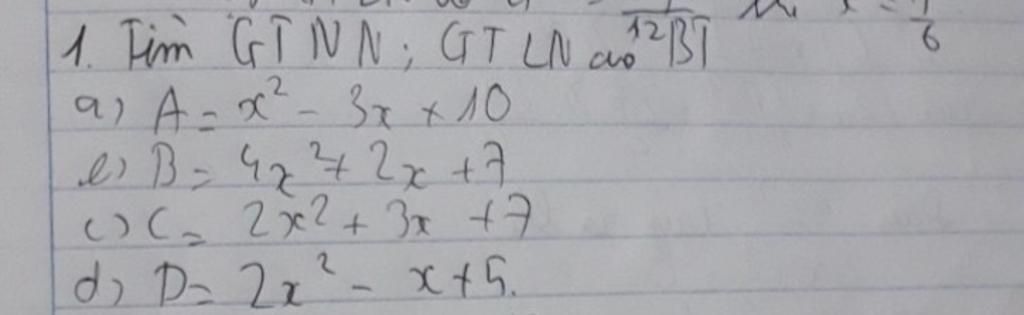 12 6
1. Tìm GTNN; GTLN của BT
a) A = x² - 3x + 10
b) B = 4x² + 2x + 7
c) C = 2x² + 3x + 7
d) D = 2x² - x + 5.